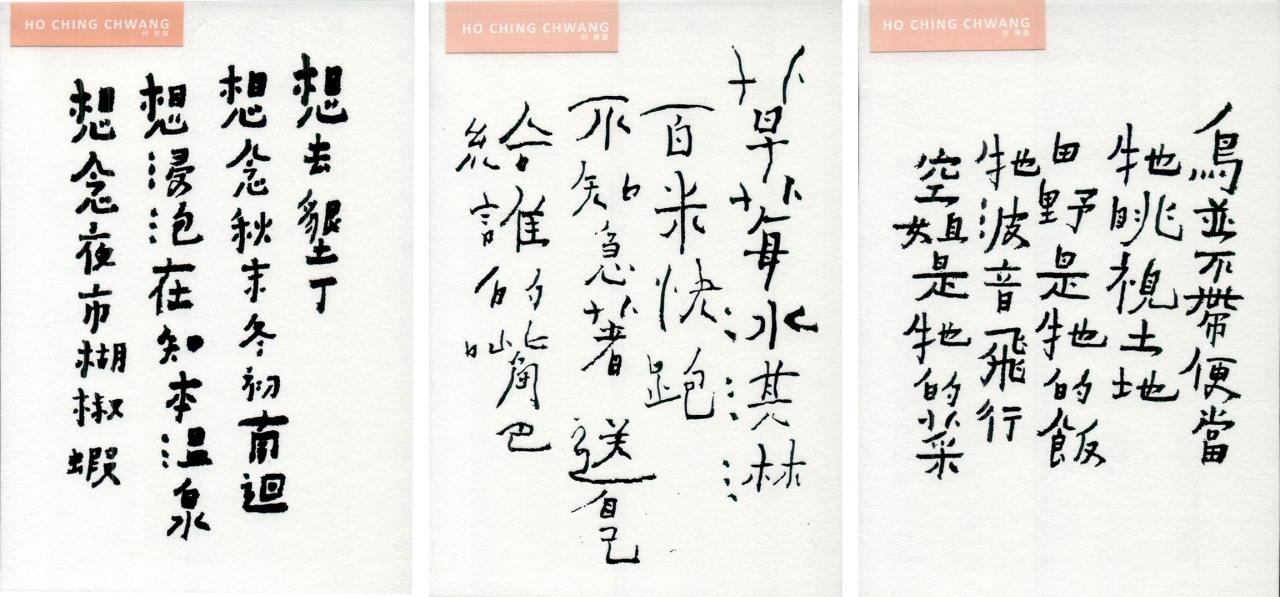 HO CHING CHWANG
想去墾丁
想念秋末冬初南迴
想浸泡在知本溫泉
想念夜市楜椒蝦
HO CHING CHWANG
草莓冰淇淋
百米快跑
不知急著送自己
給誰的嘴巴
HO CHING CHWANG
鳥並不帶便當
牠眺視土地
田野是牠的飯
牠波音飛行
空姐是牠的菜